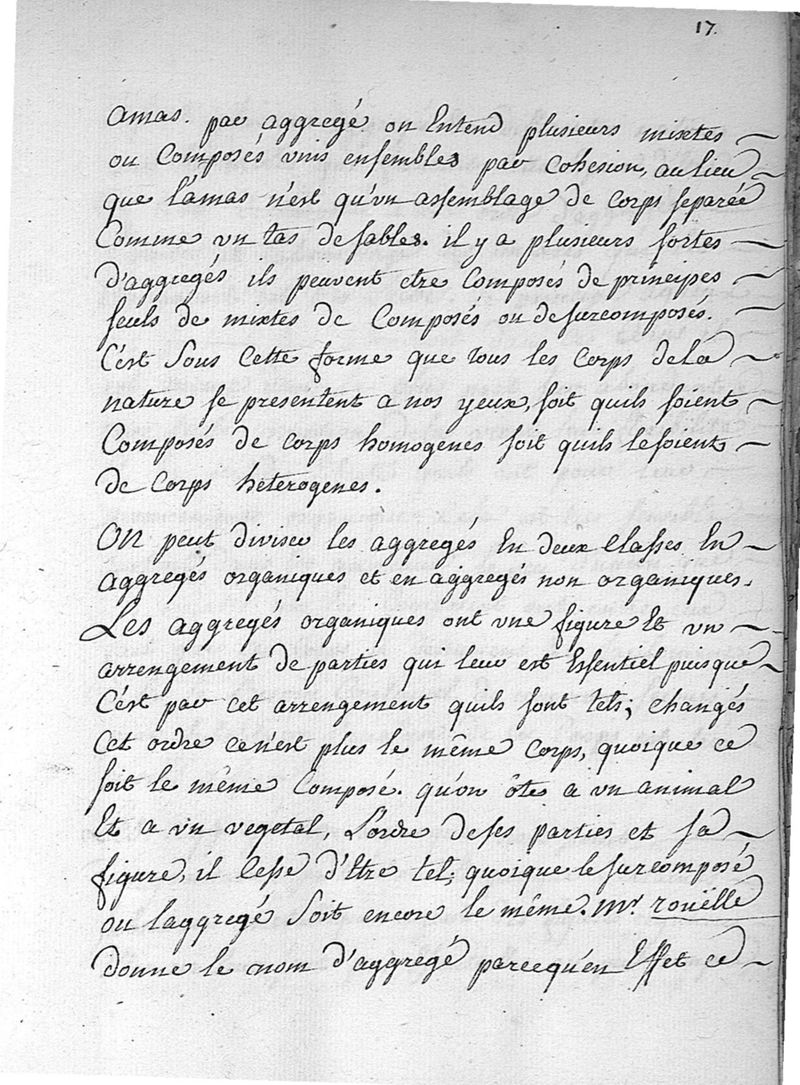 17.
amas. par aggregé on Entend plusieurs mixtes
ou Composés unis ensembles par Cohesion, au lieu
que l'amas n'est qu'un assemblage de corps separée
Comme un tas de sables. il y a plusieurs sortes
d'aggregés ils peuvent etre Composés de principes
seuls de mixtes de Composés ou de surcomposés.
C'est sous Cette forme que tous les corps de la
nature se presentent a nos yeux, soit quils soient
Composés de corps homogenes soit quils le soient
de Corps héterogenes.
On peut diviser les aggregés En deux Classes En
aggregés organiques et en aggregés non organiques.
Les aggregés organiques ont une figure Et un
arrengement de parties qui leur est Essentiel puisque
C'est par cet arrengement quils sont tels; changés
Cet ordre ce n'est plus le même Corps, quoique ce
soit le même Composé. qu'on ôtes a un animal
Et a un vegetal, l'ordre de ses parties et sa
figure, il Cesse d'Etre tel; quoique le surcomposé
ou laggregé soit encore le même. Mr. rouëlle
donne le nom d'aggregé parcequ'en Effet ce